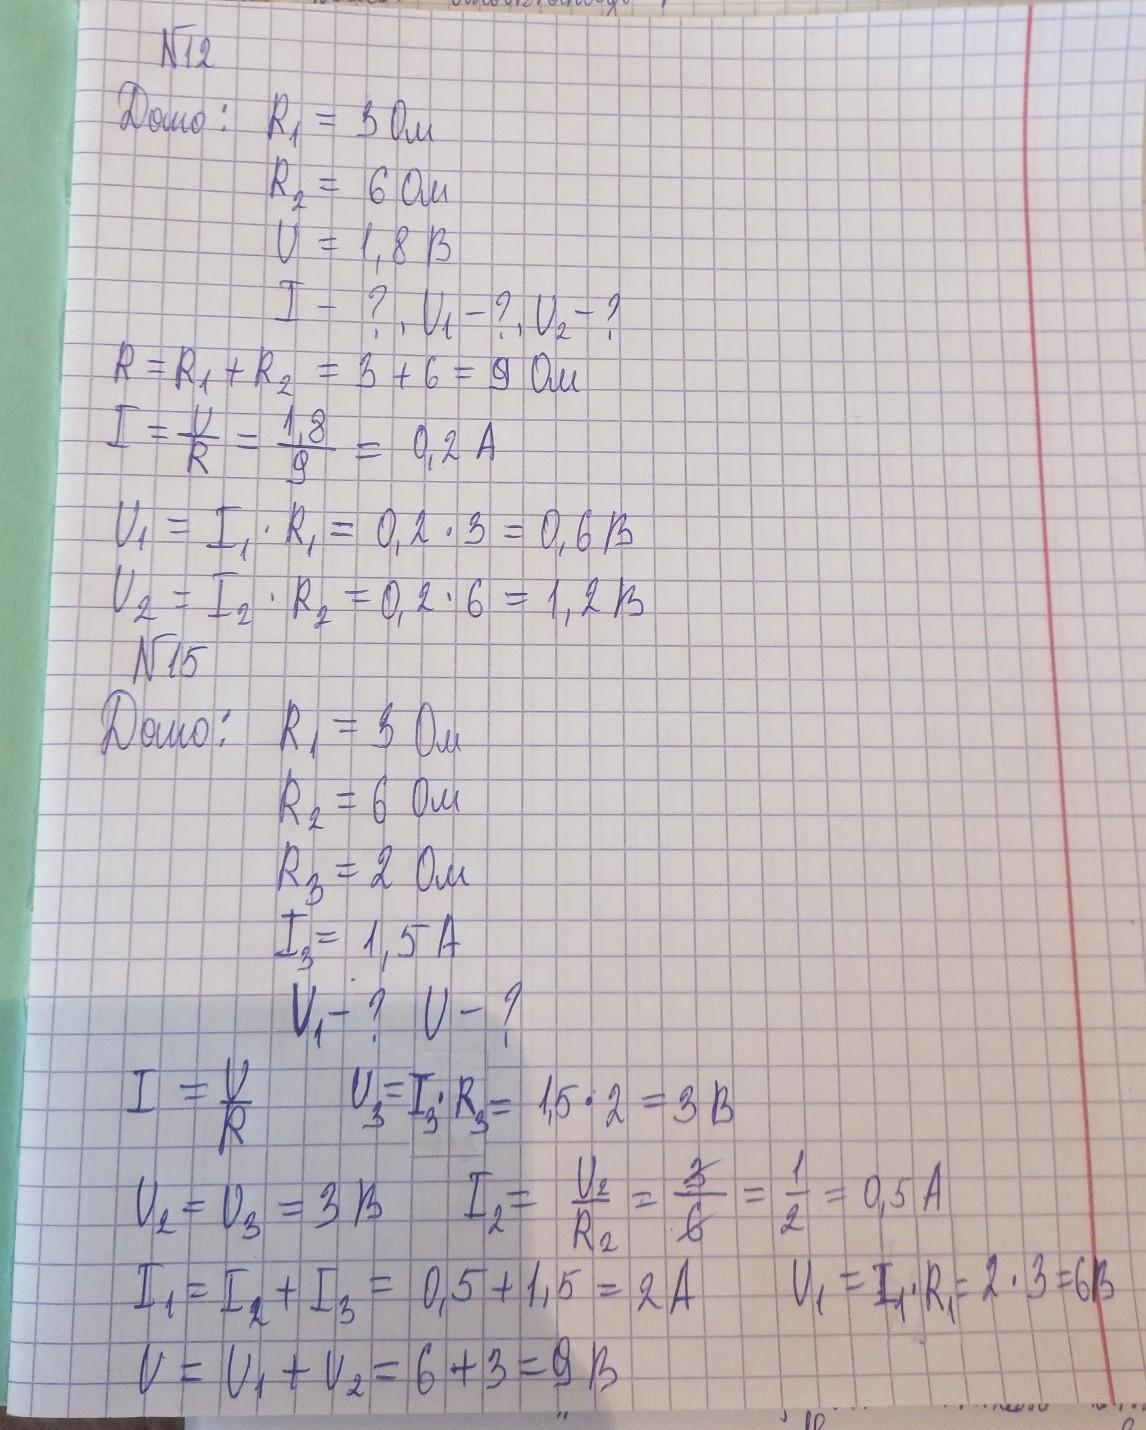 N12
Дано: R₁ = 3 Ом
R₂ = 6 Ом
U = 1,8 В
I - ?, U₁ - ?, U₂ - ?
R = R₁ + R₂ = 3 + 6 = 9 Ом
I = U/R = 1,8/9 = 0,2 А
U₁ = I₁ · R₁ = 0,2 · 3 = 0,6 В
U₂ = I₂ · R₂ = 0,2 · 6 = 1,2 В
N15
Дано: R₁ = 3 Ом
R₂ = 6 Ом
R₃ = 2 Ом
I₃ = 1,5 А
U₁ - ? U - ?
I = U/R U₃ = I₃ · R₃ = 1,5 · 2 = 3 В
U₂ = U₃ = 3 В I₂ = U₂/R₂ = 3/6 = 1/2 = 0,5 А
I₁ = I₂ + I₃ = 0,5 + 1,5 = 2 А U₁ = I₁ · R₁ = 2 · 3 = 6 В
U = U₁ + U₂ = 6 + 3 = 9 В